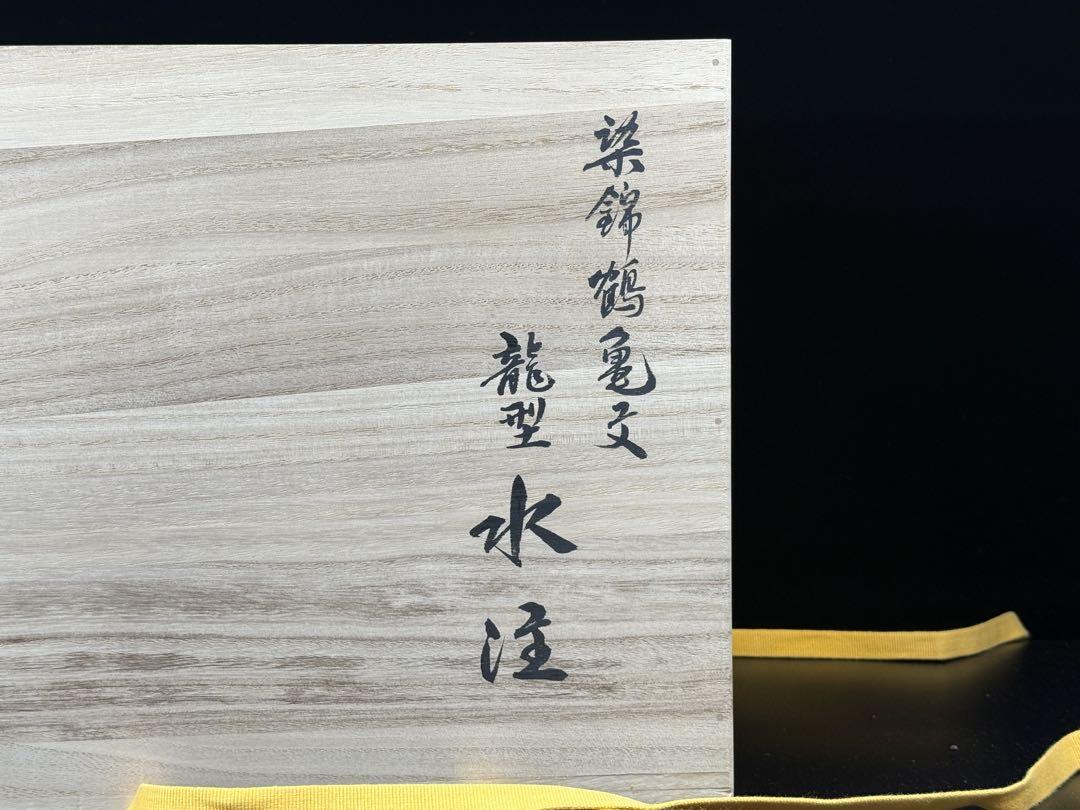 染錦鶴亀文
龍型水注